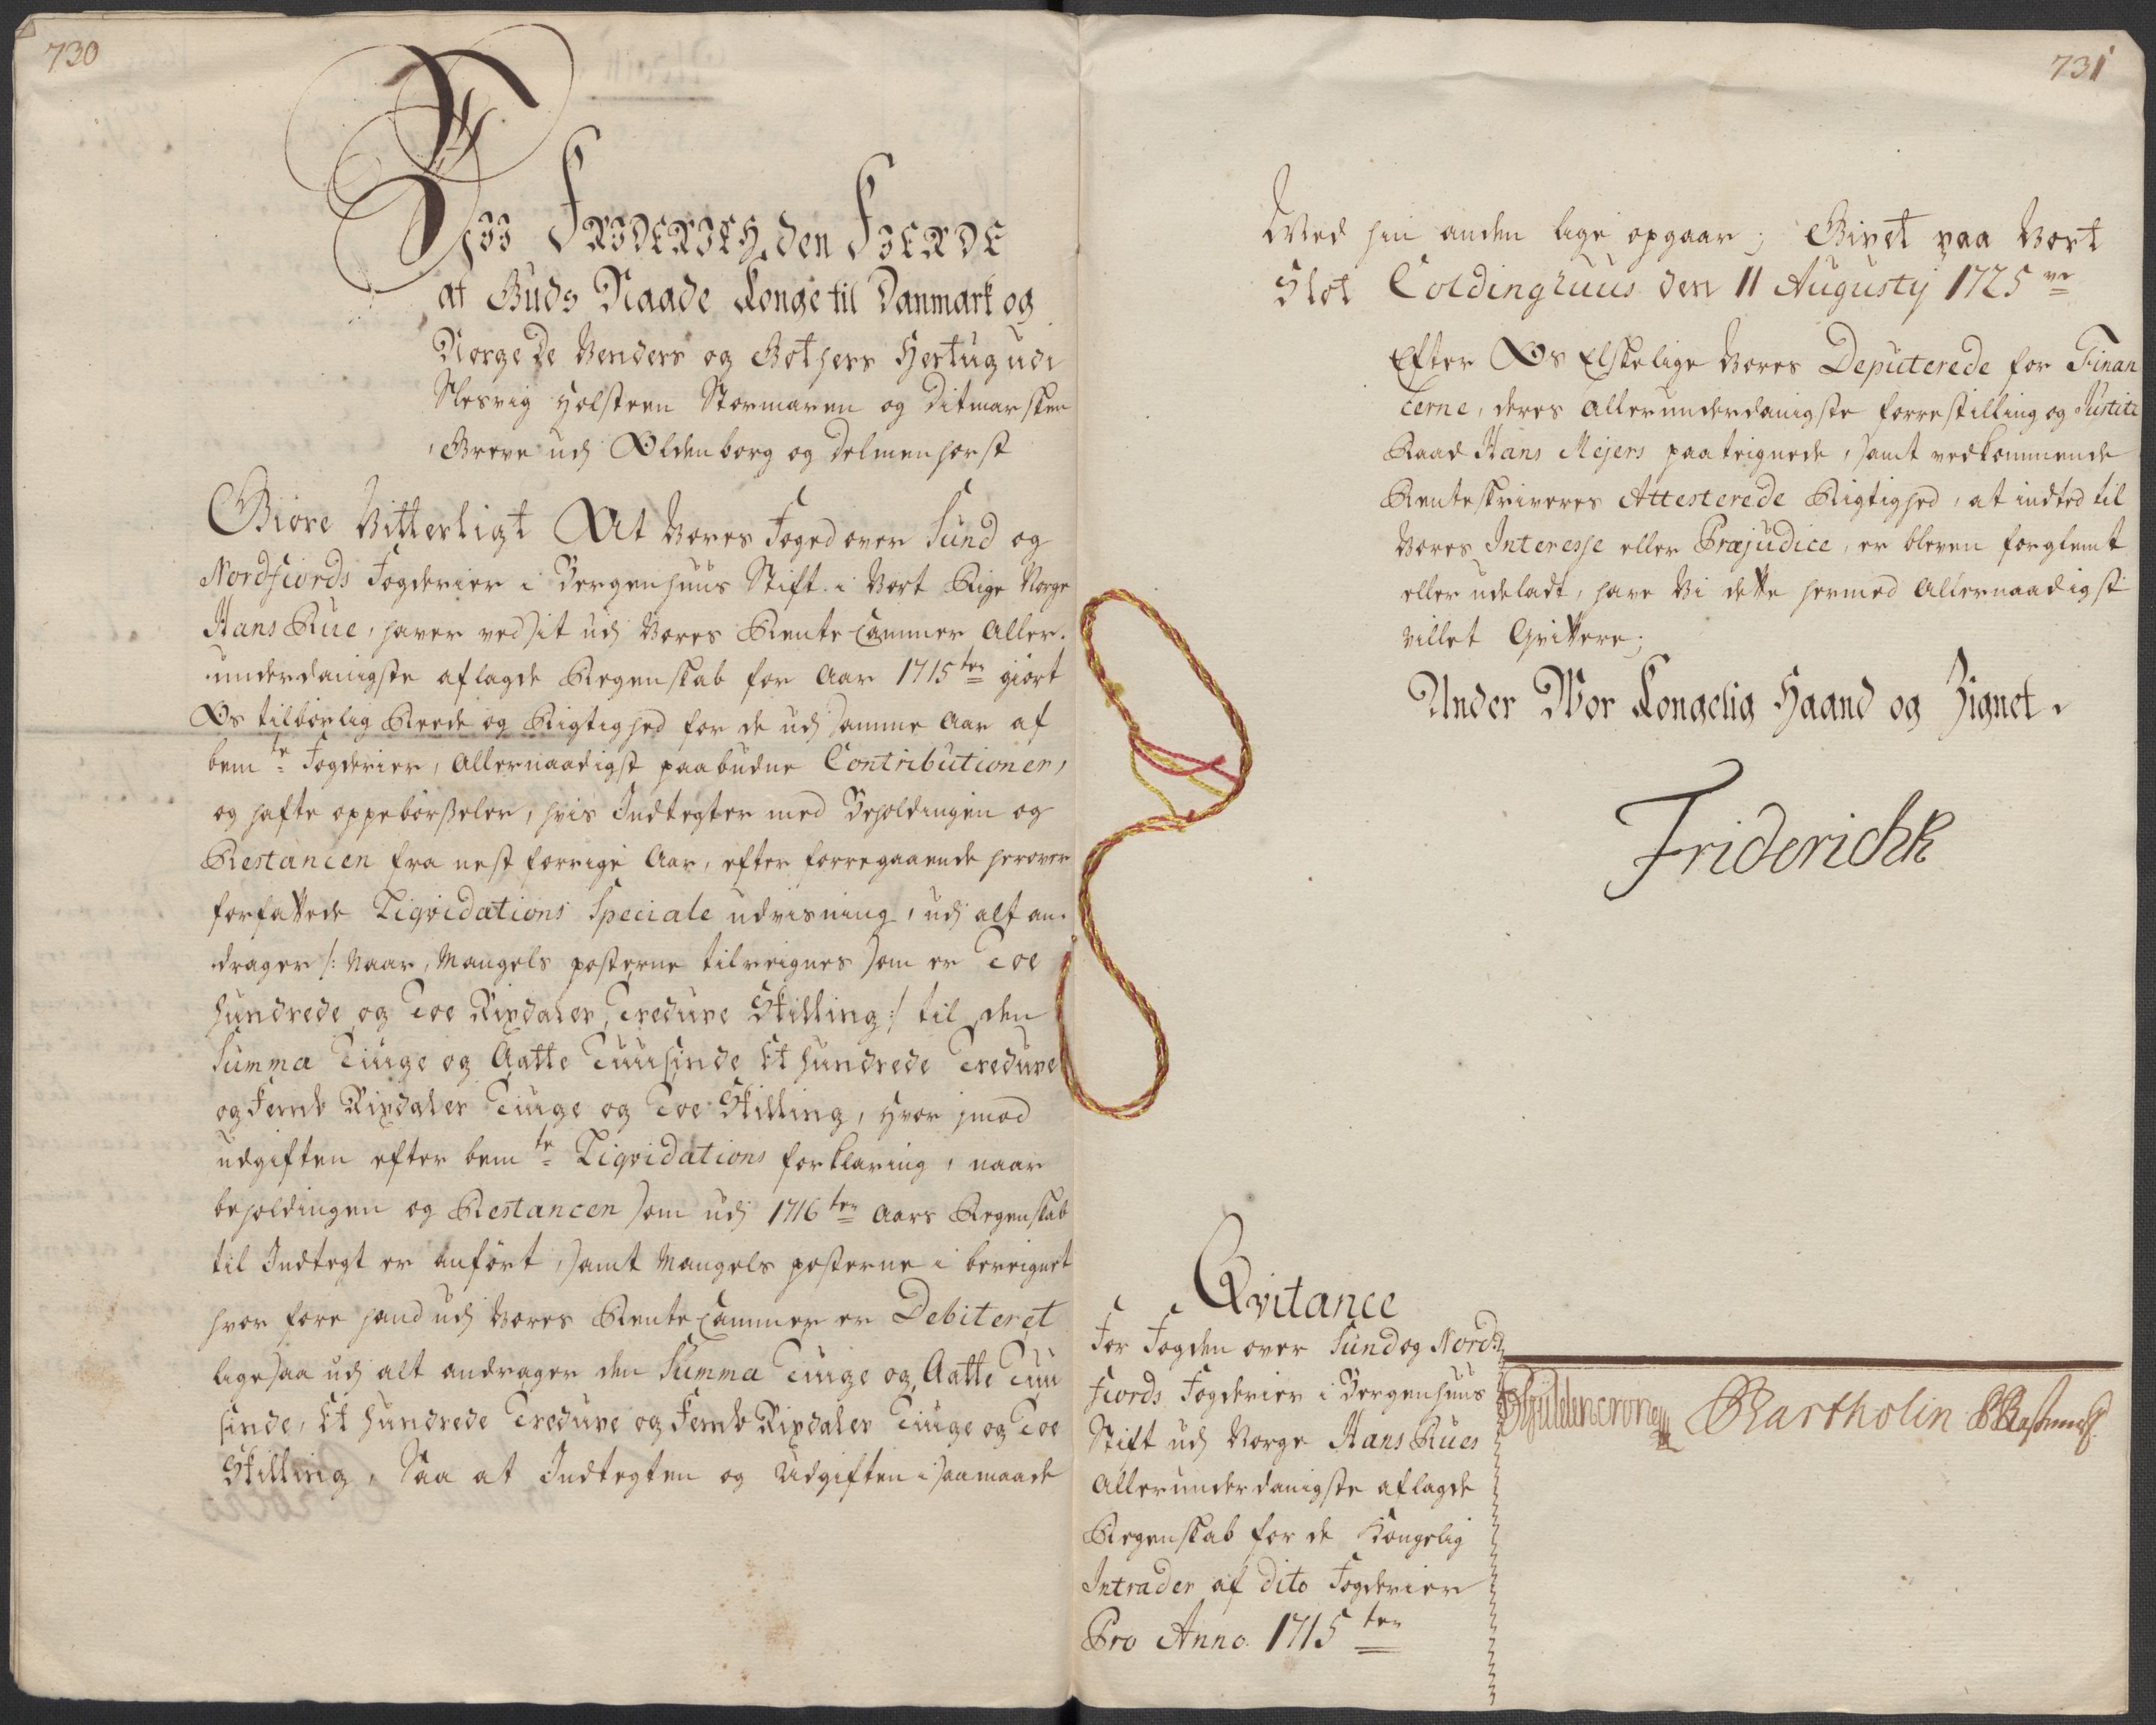 730
Vii FRIDERICH den FIERDE
af Guds Naade Konge til Danmark og
Norge De Venders og Gothers Hertug udi
Slesvig Holsteen Stormaren og Ditmarsken
Greve udj Oldenborg og Delmenhorst
Giøre Vitterligt At Vores Foged over Sund og
Nordfiords Fogderier i Bergenhuus Stift i Vort Rige Norge
Hans Rue, haver ved sit udj Vores Rente Cammer Aller-
underdanigste aflagde Regenskab for Aar 1715ten giort
Os tilbørlig Reede og Rigtighed for de udj samme Aar af
bemte Fogderier, Allernaadigst paabudne Contributioner,
og hafte oppebørßeler, hvis Indtegter med Beholdingen og
Restancen fra nest forrige Aar, efter forregaaende herover
forfattede Liqvidations Speciale udvisning, udj alt an-
drager /: Naar, Mangels posterne tilreignes som er Toe
hundrede og Toe Rixdaler, Tredive Skilling :/ til den
Summa Tiuge og Aatte Tuusinde Et hundrede Tredive
og Femb Rixdaler Tiuge og Toe Skilling, hvor jmod
udgiften efter bemte Liqvidations forklaring, naar
beholdingen og Restancen som udj 1716ten Aars Regenskab
til Indtegt er anført, samt Mangels posterne i bereignet
hvor fore hand udj Vores Rente Cammer er Debiteret
lige saa udj alt andrager den Summa Tiuge og Aatte Tuu
sinde, Et hundrede Tredive og Femb Rixdaler Tiuge og Toe
Skilling, Saa at Indtegten og Udgiften i saa maade
731
Med hin anden lige opgaar; Givet paa Vort
Slot Coldinghuus den 11 Augustij 1725ve
Efter Os Elskelige Vores Deputerede for Finan
cerne, deres allerunderdanigste forrestilling og Justitz
Raad Hans Mejers paateignede, samt vedkommende
Renteskriveres Attesterede Rigtighed, at indted til
Vores Interesse eller Præjudice, er bleven forglemt
eller udeladt, have Vi dette hermed Allernaadigst
villet Qvittere;
Under Vor Kongelig Haand og Zignet.
Friderich R
Qvitance
For Fogden over Sund og Nord-
fiords Fogderier i Bergenhuus
Stift udj Norge Hans Rues
Allerunderdanigste aflagde
Regenskab for de Kongelig
Intrader af dito Fogderier
Pro Anno 1715ten
Gÿldencrone Bartholin